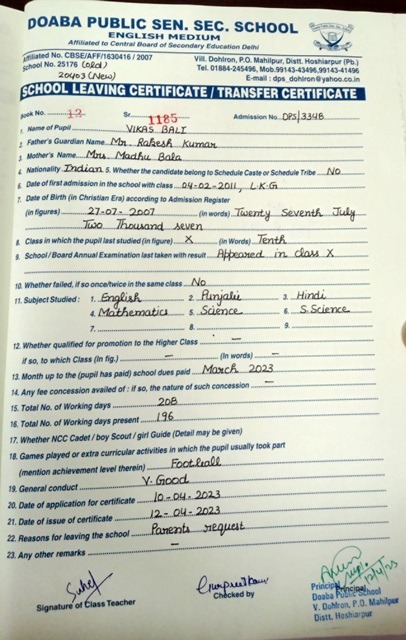 DOABA PUBLIC SEN. SEC. SCHOOL
ENGLISH MEDIUM
Affiliated to Central Board of Secondary Education Delhi
Affiliated No. CBSE/AFF/1630416 / 2007
Vill. Dohlron, P.O. Mahilpur, Distt. Hoshiarpur (Pb.)
School No. 25176 (old)
Tel. 01884-245496, Mob.99143-43496,99143-41496
20403 (New)
E-mail : dps_dohlron@yahoo.co.in
SCHOOL LEAVING CERTIFICATE / TRANSFER CERTIFICATE
Book No. 12 Sr. 1185 Admission No. DPS/3348
1. Name of Pupil VIKAS BALI
2. Father's Guardian Name Mr. Rakesh Kumar
3. Mother's Name Mrs. Madhu Bala
4. Nationality Indian 5. Whether the candidate belong to Schedule Caste or Schedule Tribe NO
6. Date of first admission in the school with class 04-02-2011, L.K.G
7. Date of Birth (in Christian Era) according to Admission Register
(in figures) 27-07-2007 (in words) Twenty Seventh July
Two Thousand seven
8. Class in which the pupil last studied (in figure) X (in Words) Tenth
9. School / Board Annual Examination last taken with result Appeared in class X
10. Whether failed, if so once/twice in the same class No
11. Subject Studied : 1. English 2. Punjabi 3. Hindi
4. Mathematics 5. Science 6. S.Science
7. 8. 9.
12. Whether qualified for promotion to the Higher Class -
if so, to which Class (In fig.) - (In words) -
13. Month up to the (pupil has paid) school dues paid March 2023
14. Any fee concession availed of : if so, the nature of such concession -
15. Total No. of Working days 208
16. Total No. of Working days present 196
17. Whether NCC Cadet / boy Scout / girl Guide (Detail may be given)
18. Games played or extra curricular activities in which the pupil usually took part
(mention achievement level therein) Football
19. General conduct V. Good
20. Date of application for certificate 10-04-2023
21. Date of issue of certificate 12-04-2023
22. Reasons for leaving the school Parents request
23. Any other remarks -
Signature of Class Teacher
Gurpreet Kaur
Checked by
12/4/23
Principal
Principal
Doaba Public School
V. Dohlron, P.O. Mahilpur
Distt. Hoshiarpur